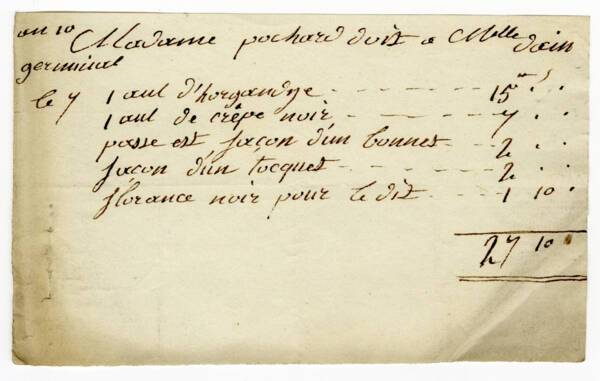 an 10 Madame pochard doit a Melle dain
germinal
le 7 1 aul d'horgandye 15
1 aul de crêpe noir 7
passe est façon d'un bonnes 2
façon d'un tocques 2
florance noir pour le dit 1 10
27 10